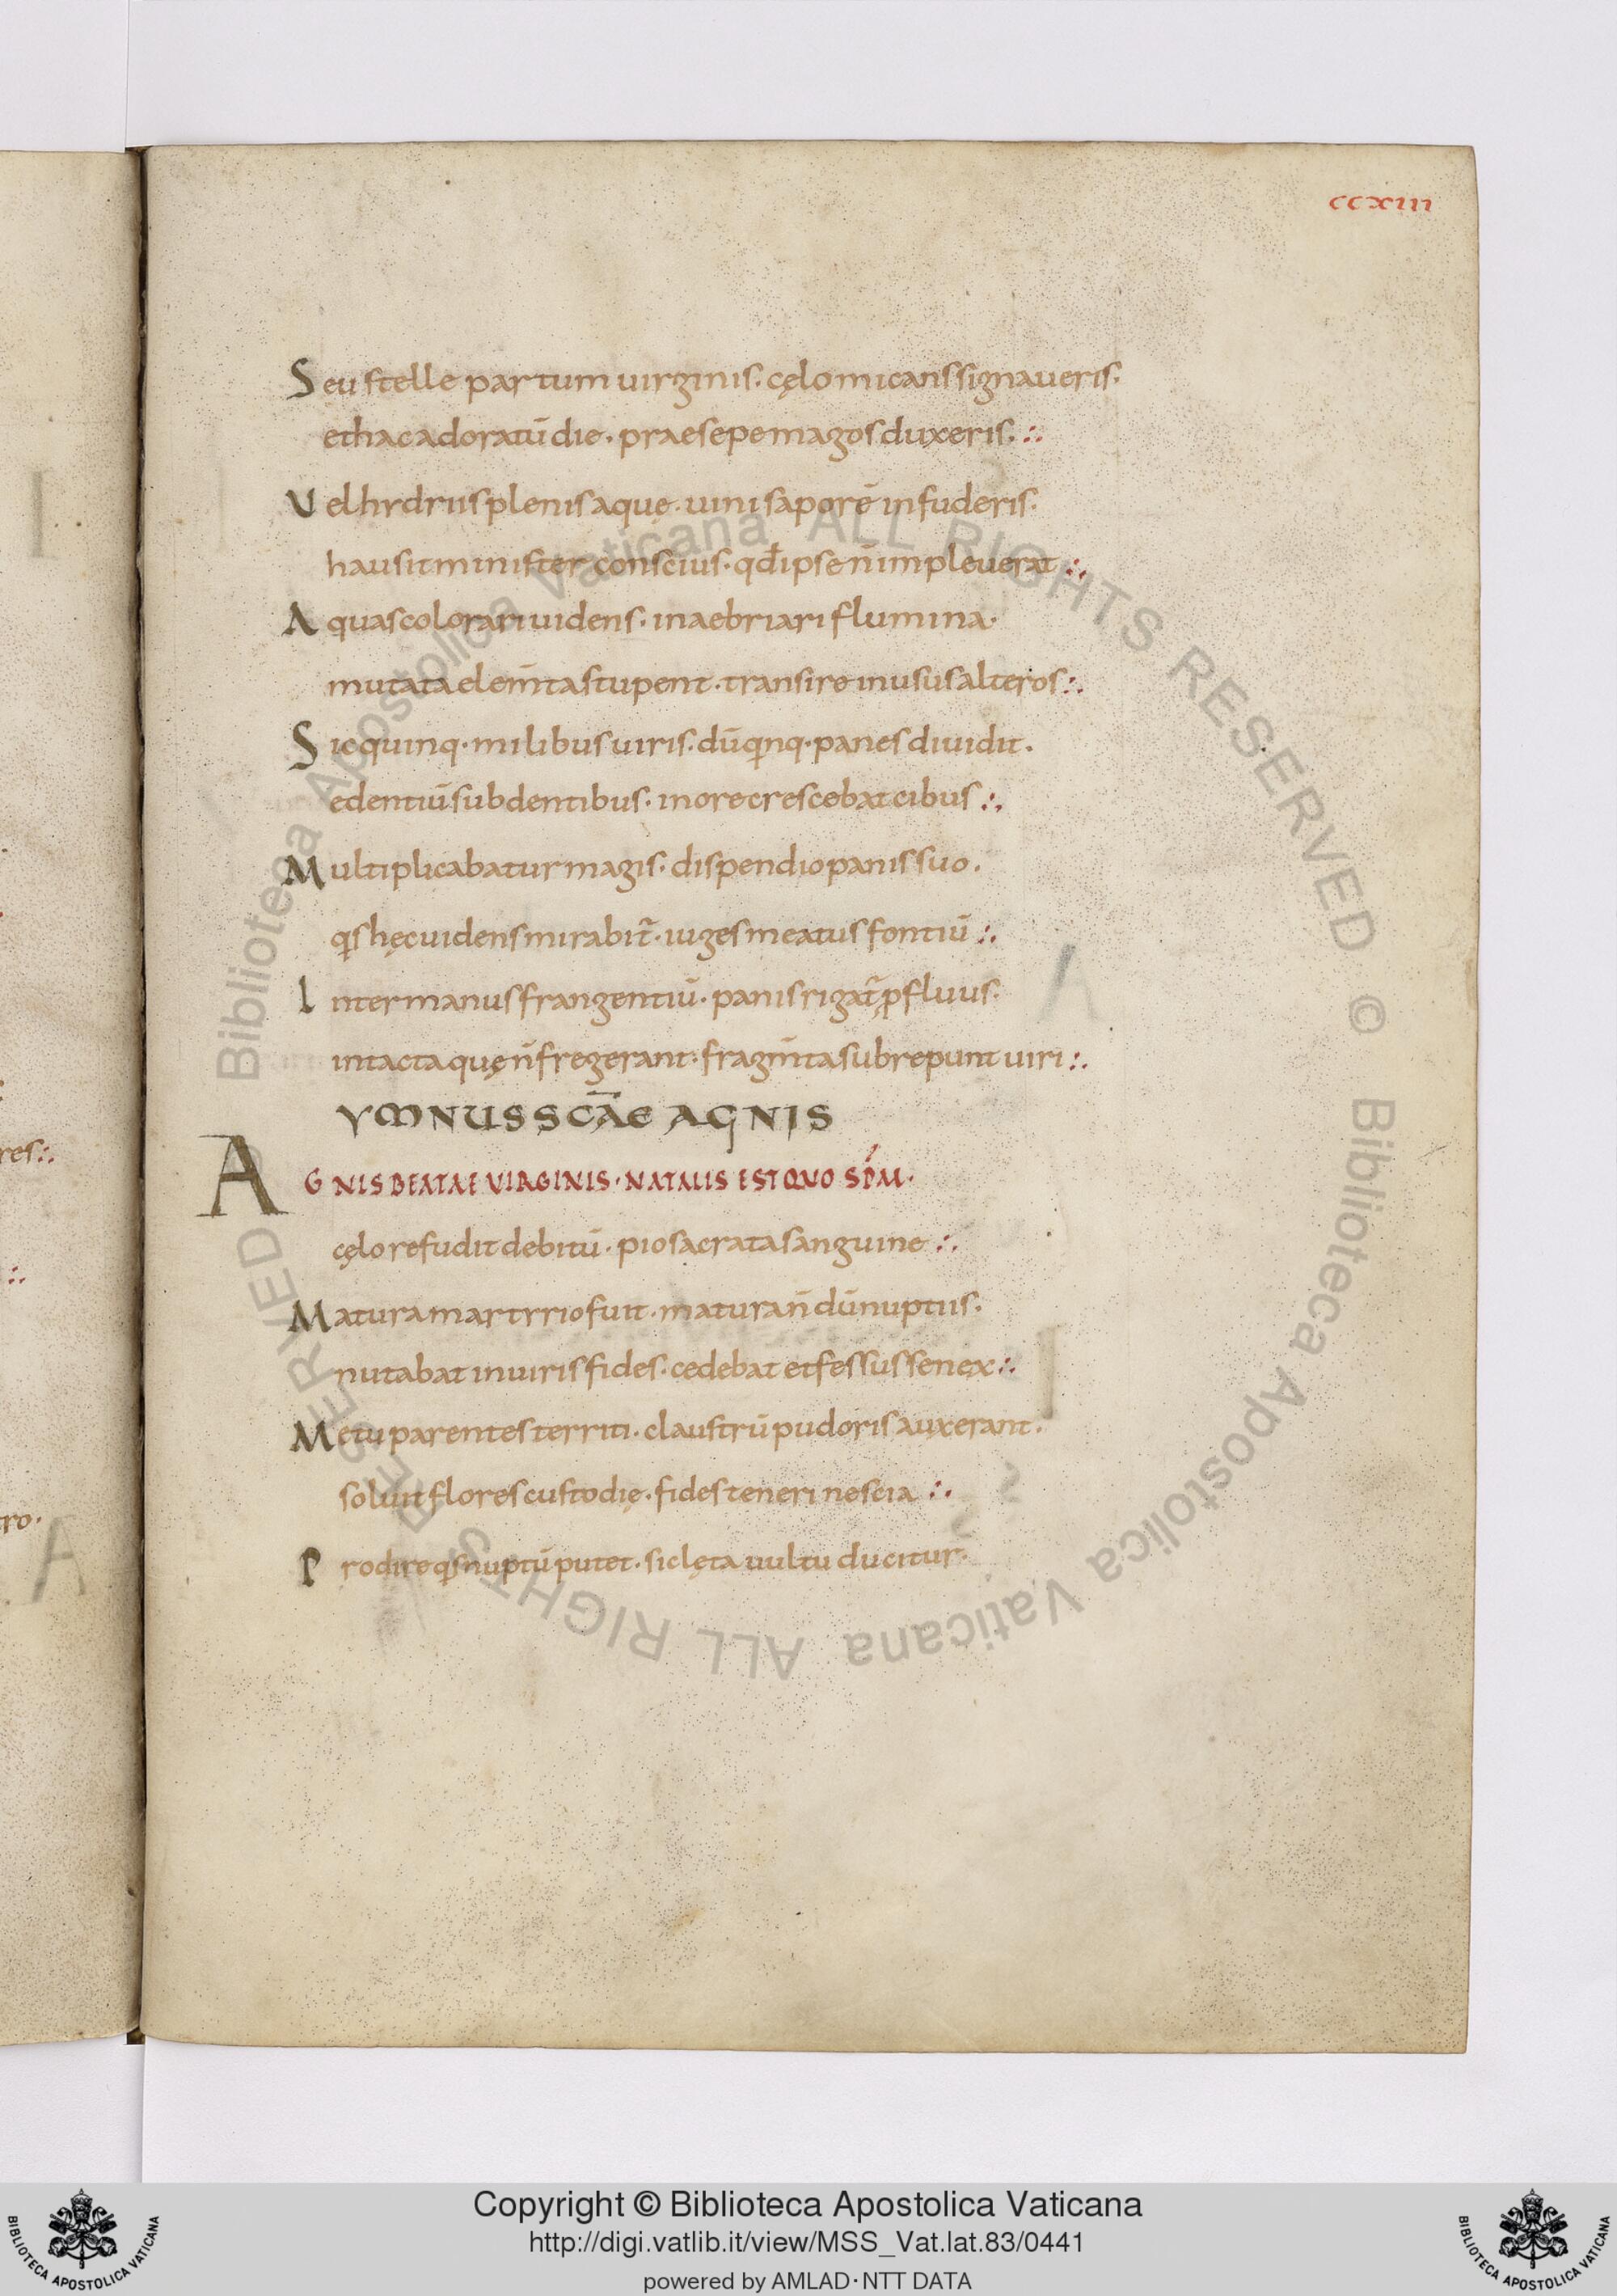 ccxiii
Seu stelle partum uirginis · cęlo micans signaueris ·
et hac adoratū die · praesepe magos duxeris ·:·
Vel hydriis plenis aquę · uini saporē infuderis ·
hausit minister conscius · qđ ipse n̄ impleuerat ·:·
Aquas colorari uidens · inaebriari flumina ·
mutata elem̄ta stupent · transire in usus alteros ·:·
Sic quinq · milibus uiris · dū qinq · panes diuidit ·
edentiū sub dentibus · in ore crescebat cibus ·:·
Multiplicabatur magis · dispendio panis suo ·
qis hęc uidens mirabit̄ · iuges meatus fontiū ·:·
Inter manus frangentiū · panis rigat̄ ꝓfluus ·
intacta quę n̄ fregerant · fragm̄ta subrepunt uiri ·:·
YMNUS SCĀE AGNIS
AGNIS BEATAE VIRGINIS · NATALIS EST QUO SPM ·
cęlo refudit debitū · pio sacrata sanguine ·:·
Matura martyrio fuit · matura n̄dū nuptiis ·
nutabat in uiris fides · cedebat et fessus senex ·:·
Metu parentes territi · claustrū pudoris auxerant ·
soluit flores custodię · fides teneri nescia ·:·
Prodire qis nuptū putet · sic lęta uultu ducitur ·
res ·:·
·:·
tro ·
A
Biblioteca Apostolica Vaticana ALL RIGHTS RESERVED © Biblioteca Apostolica Vaticana ALL RIGHTS RESERVED ©
Copyright © Biblioteca Apostolica Vaticana
http://digi.vatlib.it/view/MSS_Vat.lat.83/0441
powered by AMLAD · NTT DATA
BIBLIOTECA APOSTOLICA VATICANA
BIBLIOTECA APOSTOLICA VATICANA